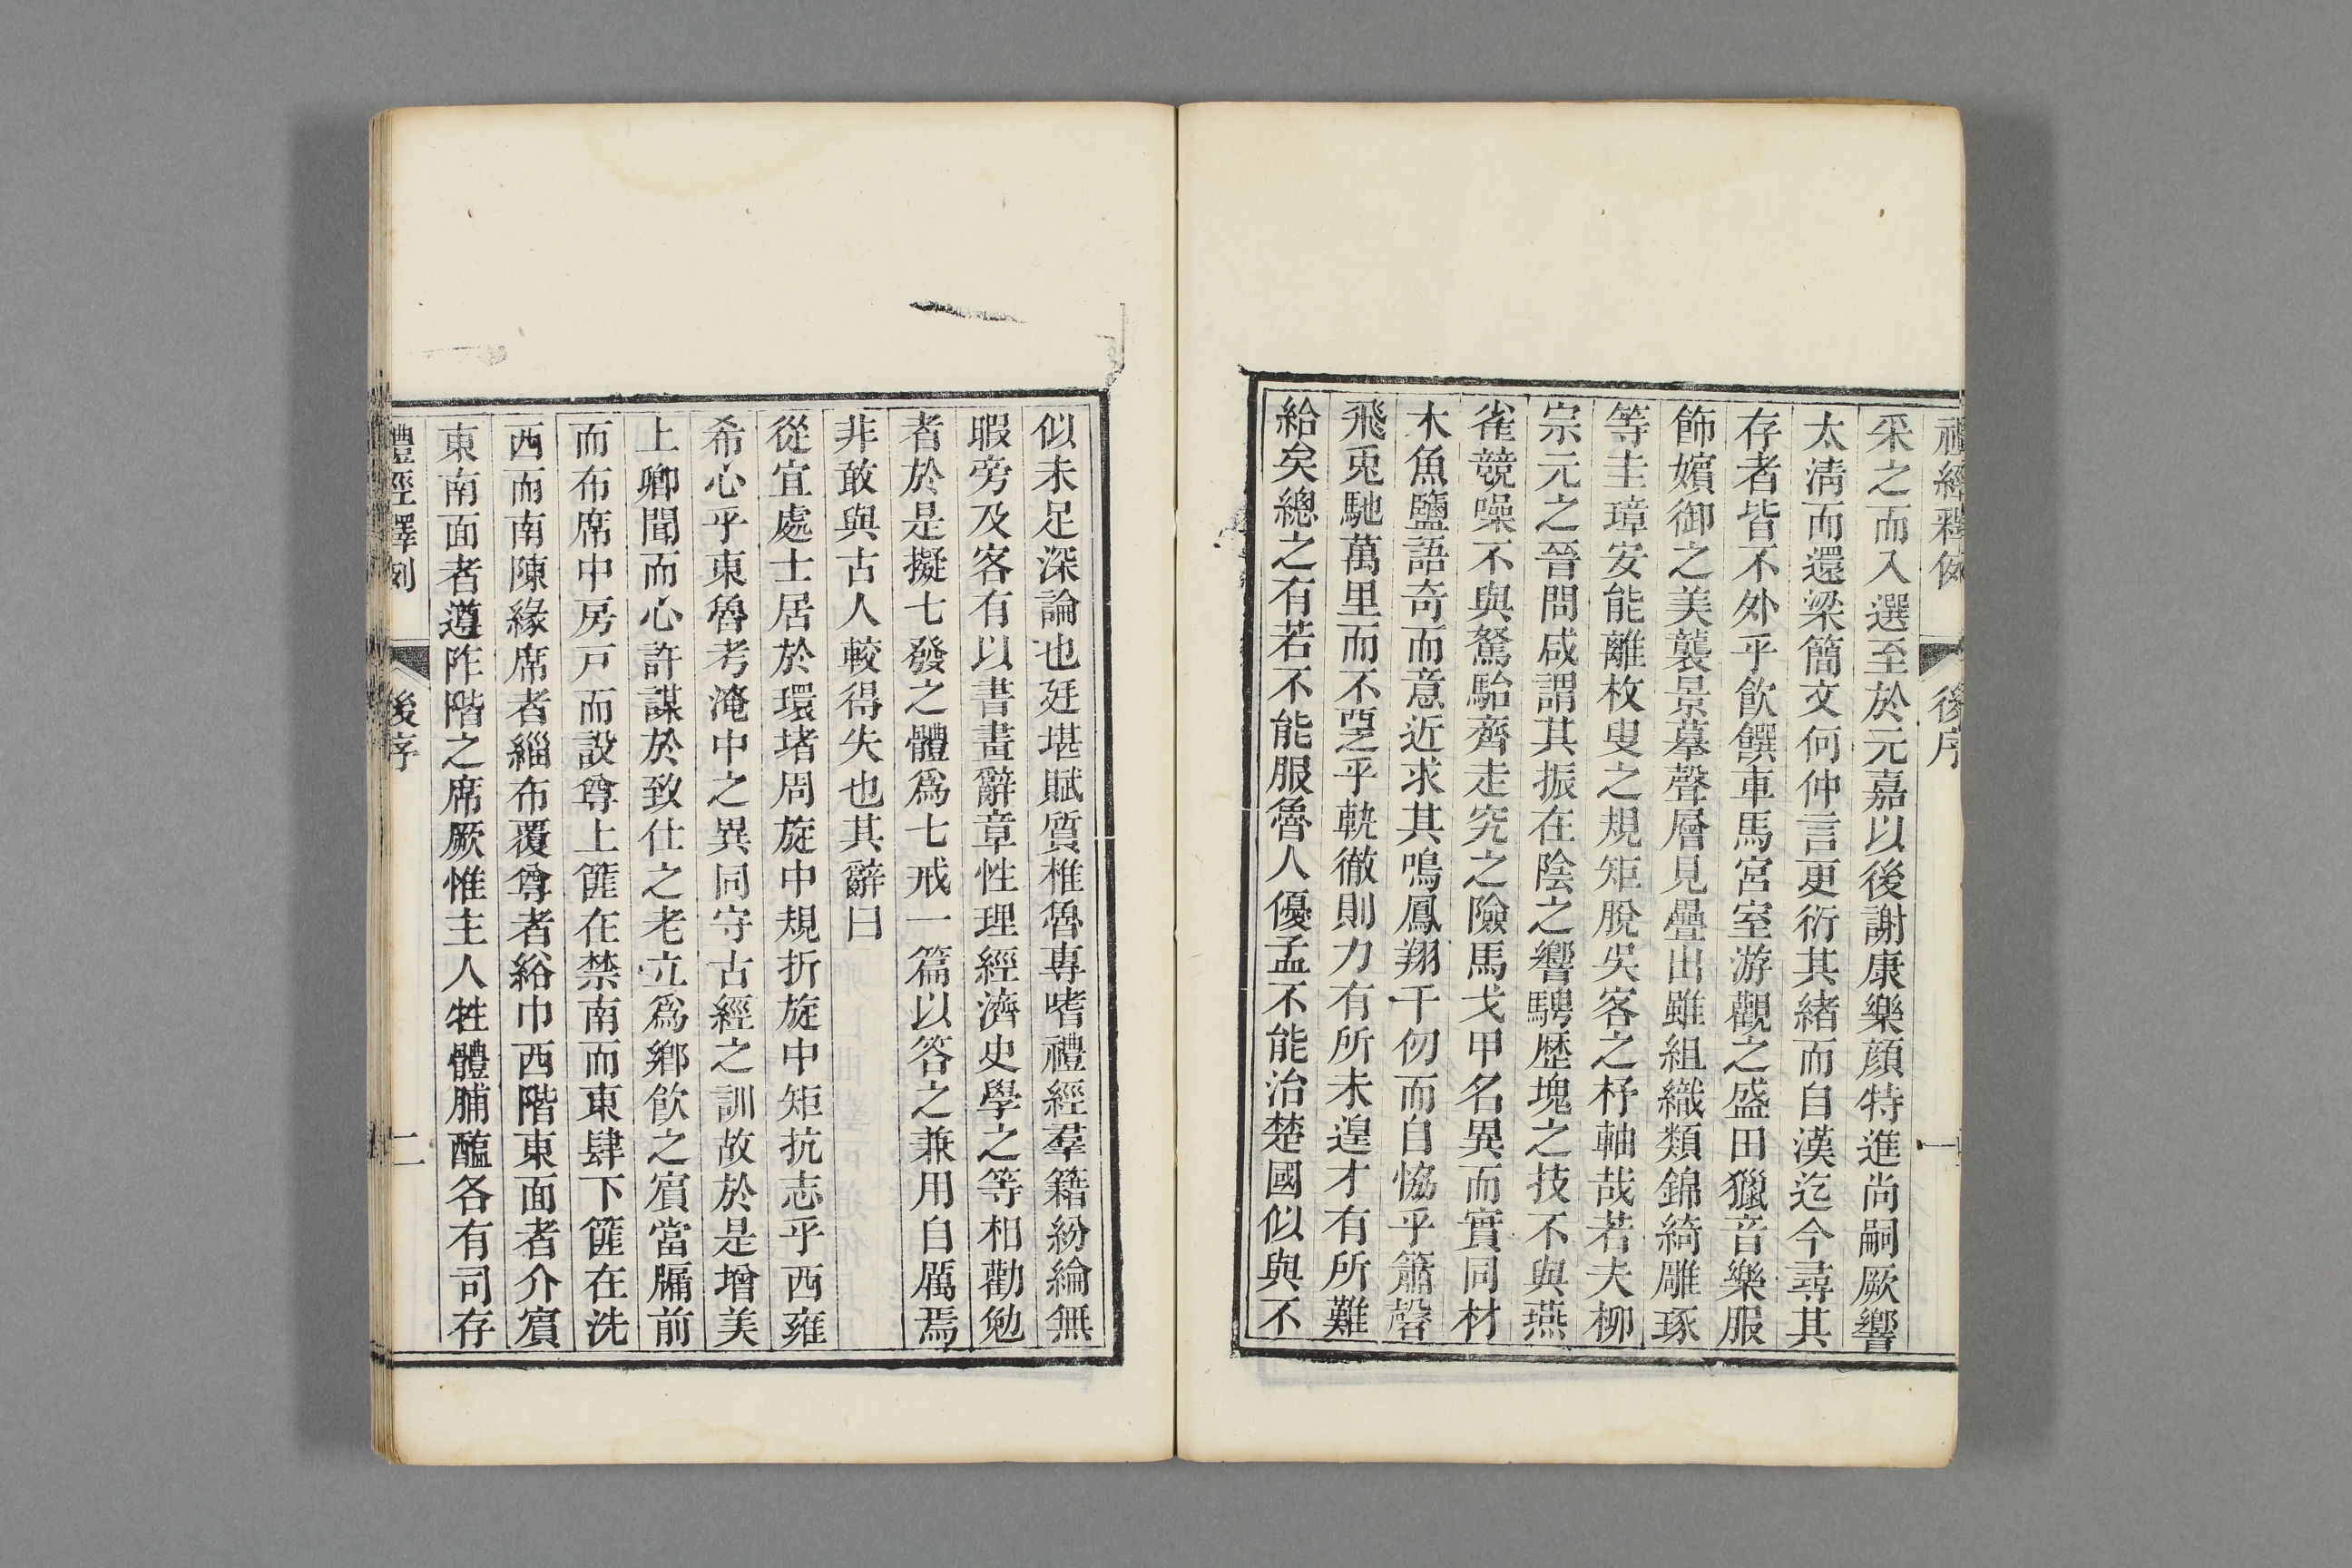 禮經釋例
後序
一
采之而入選至於元嘉以後謝康樂顔特進尚嗣厥響
太清而還梁簡文何仲言更衍其緒而自漢迄今尋其
存者皆不外乎飲饌車馬宮室游觀之盛田獵音樂服
飾嬪御之美襲景摹聲層見疊出雖組織類錦綺雕琢
等圭璋安能離枚叟之規矩脫吳客之杼軸哉若夫柳
宗元之晉問咸謂其振在陰之響騁歷塊之技不與燕
雀競噪不與駑駘齊走究之險馬戈甲名異而實同材
木魚鹽語奇而意近求其鳴鳳翔千仞而自恊乎簫磬
飛兎馳萬里而不踅乎軌徹則力有所未遑才有所難
給矣總之有若不能服魯人優孟不能治楚國似與不
似未足深論也廷堪賦質椎魯專嗜禮經羣籍紛綸無
暇旁及客有以書畫辭章性理經濟史學之等相勸勉
者於是擬七發之體爲七戒一篇以答之兼用自厲焉
非敢與古人較得失也其辭曰
從宜處士居於環堵周旋中規折旋中矩抗志乎西雍
希心乎東魯考淹中之異同守古經之訓故於是增美
上卿聞而心許謀於致仕之老立爲鄕飲之賔當牖前
而布席中房戸而設尊上篚在禁南而東肆下篚在洗
西而南陳緣席者緇布覆尊者綌巾西階東面者介賔
東南面者遵阼階之席厥惟主人牲體脯醢各有司存
禮經釋例
後序
二